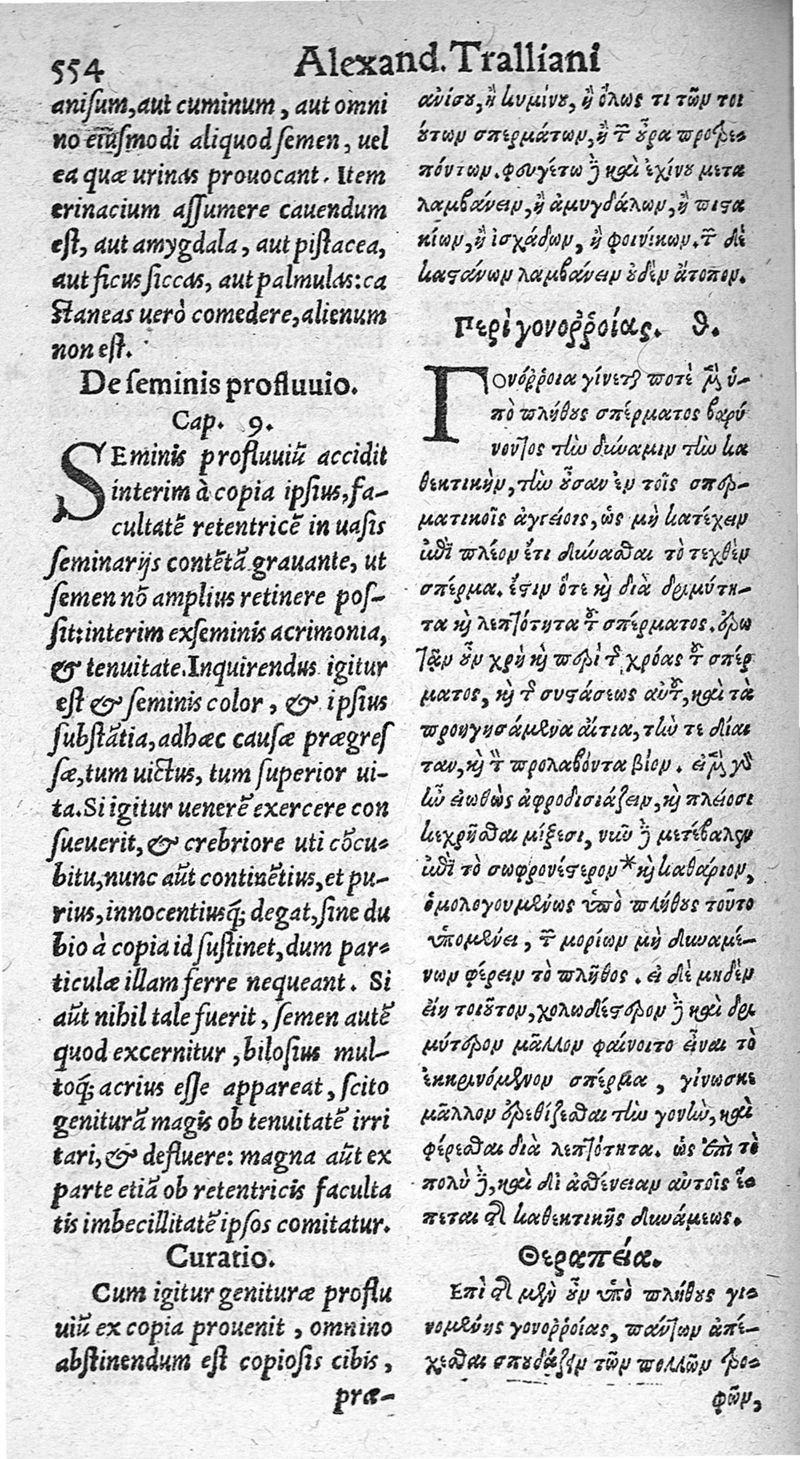 554
Alexand. Tralliani
anisum, aut cuminum, aut omni
no eiusmodi aliquod semen, uel
ea quæ urinas prouocant. Item
erinacium assumere cauendum
est, aut amygdala, aut pistacea,
aut ficus siccas, aut palmulas: ca
staneas uerò comedere, alienum
non est.
De seminis profluuio.
Cap. 9.
SEminis profluuiũ accidit
interim à copia ipsius, fa-
cultatẽ retentricẽ in uasis
seminarijs contẽtã grauante, ut
semen nõ amplius retinere pos-
sit: interim ex seminis acrimonia,
& tenuitate. Inquirendus igitur
est & seminis color, & ipsius
substãtia, adhæc causæ prægres
sæ, tum uictus, tum superior ui-
ta. Si igitur uenerẽ exercere con
sueuerit, & crebriore uti cõcu-
bitu, nunc aũt continẽtius, et pu-
rius, innocentiusq́; degat, sine du
bio à copia id sustinet, dum par-
ticulæ illam ferre nequeant. Si
aũt nihil tale fuerit, semen autẽ
quod excernitur, biliosius mul-
toq́; acrius esse appareat, scito
geniturã magis ob tenuitatẽ irri
tari, & defluere: magna aũt ex
parte etiã ob retentricis faculta
tis imbecillitatẽ ipsos comitatur.
Curatio.
Cum igitur genituræ proflu
uiũ ex copia prouenit, omnino
abstinendum est copiosis cibis,
præ-
ἀνίσου, ἢ κυμίνου, ἢ ὅλως τι τῶν τοι
ούτων σπερμάτων, ἢ τῶν οὖρα προτρε-
πόντων. φευγέτω δὲ καὶ ἐχίνου μετα
λαμβάνειν, ἢ ἀμυγδάλων, ἢ πιστα
κίων, ἢ ἰσχάδων, ἢ φοινίκων. τῶν δὲ
καστάνων λαμβάνειν οὐδὲν ἄτοπον.
Περὶ γονοῤῥοίας. θ.
Γονόῤῥοια γίνεται ποτὲ μὲν ὑ-
πὸ πλήθους σπέρματος βαρύ
νοντος τὴν δύναμιν τὴν κα
θεκτικὴν, τὴν οὖσαν ἐν τοῖς σπερ-
ματικοῖς ἀγγείοις, ὡς μὴ κατέχειν
ἐπὶ πλέον ἔτι δύνασθαι τὸ τεχθὲν
σπέρμα. ἔστιν ὅτε καὶ διὰ δριμύτη-
τα καὶ λεπτότητα τοῦ σπέρματος. ἐρω
τᾶν οὖν χρὴ καὶ περὶ τῆς χρόας τοῦ σπέρ
ματος, καὶ τῆς συστάσεως αὐτοῦ, καὶ τὰ
προηγησάμενα αἴτια, τήν τε δίαι
ταν, καὶ τὸν προλαβόντα βίον. εἰ μὲν γὰρ
ἦν εἰωθὼς ἀφροδισιάζειν, καὶ πλείοσι
κεχρῆσθαι μίξεσι, νῦν δὲ μετέβαλεν
ἐπὶ τὸ σωφρονέστερον * καὶ καθάριον,
ὁμολογουμένως ὑπὸ πλήθους τοῦτο
ὑπομένει, τῶν μορίων μὴ δυναμέ-
νων φέρειν τὸ πλῆθος. εἰ δὲ μηδὲν
εἴη τοιοῦτον, χολωδέστερον δὲ καὶ δρι
μύτερον μᾶλλον φαίνοιτο εἶναι τὸ
ἐκκρινόμενον σπέρμα, γίνωσκε
μᾶλλον ἐρεθίζεσθαι τὴν γονὴν, καὶ
φέρεσθαι διὰ λεπτότητα. ὡς ἐπὶ τὸ
πολὺ δὲ, καὶ δι᾽ ἀσθένειαν αὐτοῖς ἕ-
πεται τῆς καθεκτικῆς δυνάμεως.
Θεραπεία.
Ἐπὶ τῆς μὲν οὖν ὑπὸ πλήθους γι-
νομένης γονοῤῥοίας, πάντων ἀπέ-
χεσθαι σπουδάζειν τῶν πολλῶν τρο-
φῶν,